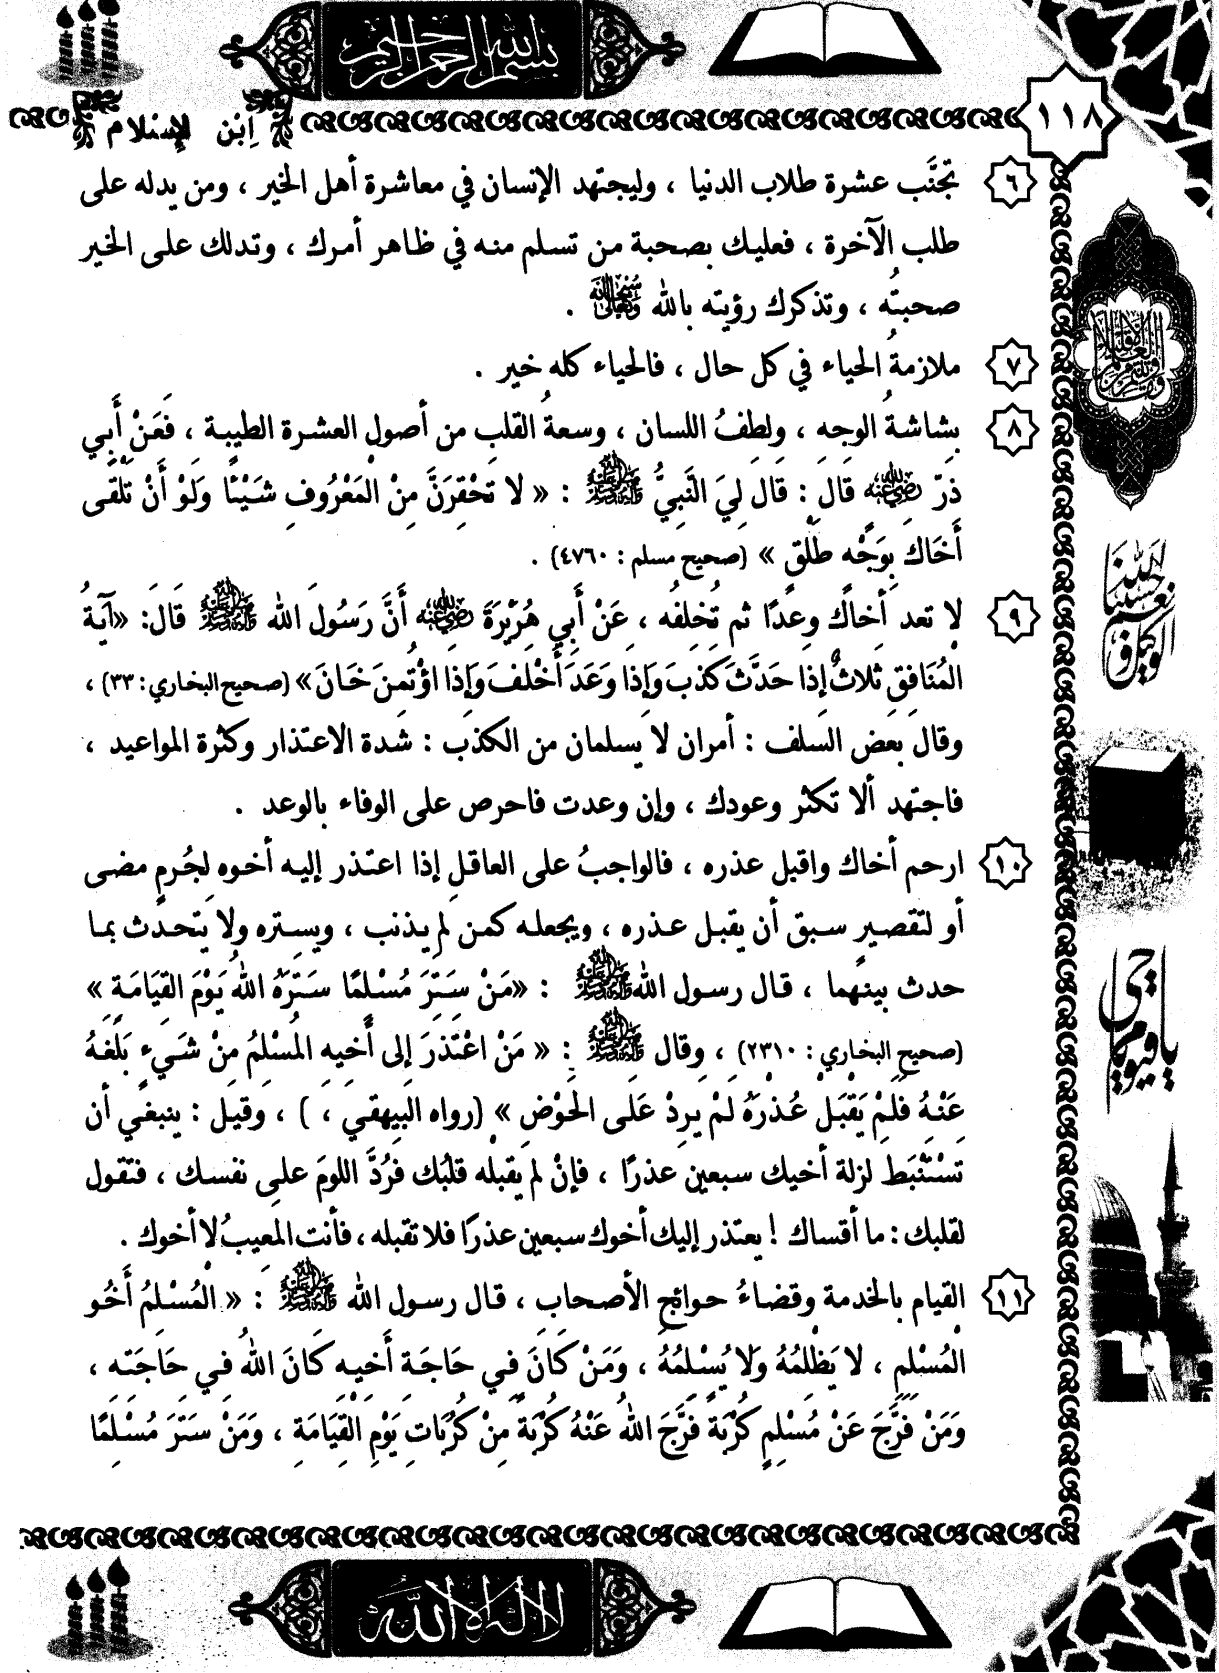 بسم الله الرحمن الرحيم
١١٨
اِبْن الإِسْلام
٦ تجنَّب عشرة طلاب الدنيا ، وليجتهد الإنسان في معاشرة أهل الخير ، ومن يدله على
طلب الآخرة ، فعليك بصحبة من تسلم منه في ظاهر أمرك ، وتدلك على الخير
صحبتُه ، وتذكرك رؤيته بالله سبحانه وتعالى .
٧ ملازمةُ الحياء في كل حال ، فالحياء كله خير .
٨ بشاشةُ الوجهِ ، ولطفُ اللسان ، وسعةُ القلبِ من أصولِ العشرة الطيبة ، فَعَنْ أَبِي
ذرّ رضي الله عنه قَالَ : قَال لِيَ النَّبِيُّ صلى الله عليه وآله وسلم : « لا تَحْقِرَنَّ مِنْ المَعْرُوفِ شَيْئًا وَلَوْ أَنْ تَلْقَى
أَخَاكَ بِوَجْهٍ طَلْقٍ » (صحيح مسلم : ٤٧٦٠) .
٩ لا تعد أخاك وعدًا ثم تُخلِفُه ، عَنْ أَبِي هُرَيْرَةَ رضي الله عنه أَنَّ رَسُولَ الله صلى الله عليه وآله وسلم قَالَ: «آيَةُ
المُنَافِقِ ثَلاثٌ إِذَا حَدَّثَ كَذَبَ وَإِذَا وَعَدَ أَخْلَفَ وَإِذَا اؤْتُمِنَ خَانَ» (صحيح البخاري: ٣٣) ،
وقال بعض السلف : أمران لا يسلمان من الكذب : شدة الاعتذار وكثرة المواعيد ،
فاجتهد ألا تكثر وعودك ، وإن وعدت فاحرص على الوفاء بالوعد .
١٠ ارحم أخاك واقبل عذره ، فالواجبُ على العاقلِ إذا اعتذر إليه أخوه لجُرمٍ مضى
أو لتقصيرٍ سبق أن يقبل عذره ، ويجعله كمن لم يذنب ، ويستره ولا يتحدث بما
حدث بينهما ، قال رسول الله صلى الله عليه وآله وسلم : «مَنْ سَتَرَ مُسْلِمًا سَتَرَهُ اللهُ يَوْمَ القِيَامَةِ »
(صحيح البخاري : ٢٣١٠) ، وقال صلى الله عليه وآله وسلم : « مَنْ اعْتَذَرَ إِلى أَخِيهِ المُسْلِمُ مِنْ شَيءٍ بَلَغَهُ
عَنْهُ فَلَمْ يَقْبَلْ عُذرَهُ لَمْ يَرِدْ عَلَى الحَوْضِ » (رواه البيهقي ، ) ، وقيل : ينبغي أن
تَسْتَنْبِط لزلة أخيك سبعين عذرًا ، فإنْ لم يقبله قلبُك فرُدَّ اللومَ على نفسك ، فتقول
لقلبك : ما أقساك ! يعتذر إليك أخوك سبعين عذرًا فلا تقبله ، فأنت المعيبُ لا أخوك .
١١ القيام بالخدمة وقضاءُ حوائجِ الأصحاب ، قال رسول الله صلى الله عليه وآله وسلم : « الْمُسْلِمُ أَخُو
الْمُسْلِمِ ، لا يَظْلِمُهُ وَلا يُسْلِمُهُ ، وَمَنْ كَانَ فِي حَاجَةِ أَخِيهِ كَانَ اللهُ فِي حَاجَتِهِ ،
وَمَنْ فَرَّجَ عَنْ مُسْلِمٍ كُرْبَةً فَرَّجَ اللهُ عَنْهُ كُرْبَةً مِنْ كُرُبَاتِ يَوْمِ الْقِيَامَةِ ، وَمَنْ سَتَرَ مُسْلِمًا
حسبنا الله ونعم الوكيل
يا حي يا قيوم
لا إله إلا الله